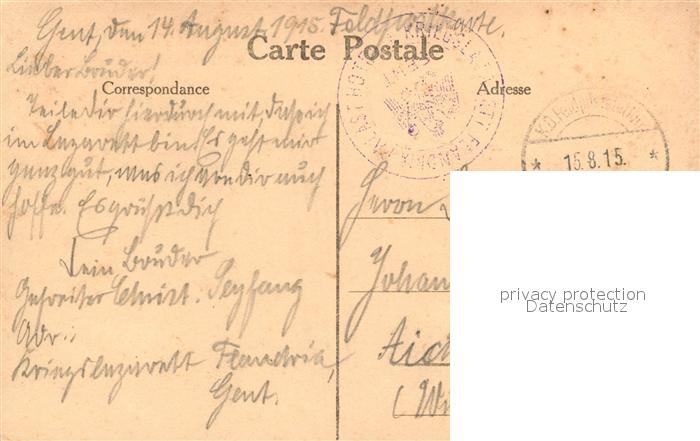 Gent, den 14. August 1915. Feldpostkarte.
Carte Postale
Correspondance
Adresse
Lieber Bruder!
Teile dir hierdurch mit, dass ich
im Lazarett bin. Es geht mir
ganz gut, was ich von dir auch
hoffe. Es grüsst dich
dein Bruder
Gefreiter Christ. Seyfang
Adr.:
Kriegslazarett Flandria,
Gent.
KRIEGSLAZARETT FLANDRIA PALAST HOTEL
GENT
15.8.15.
Herrn
Johan
Aich
(Wü
privacy protection
Datenschutz